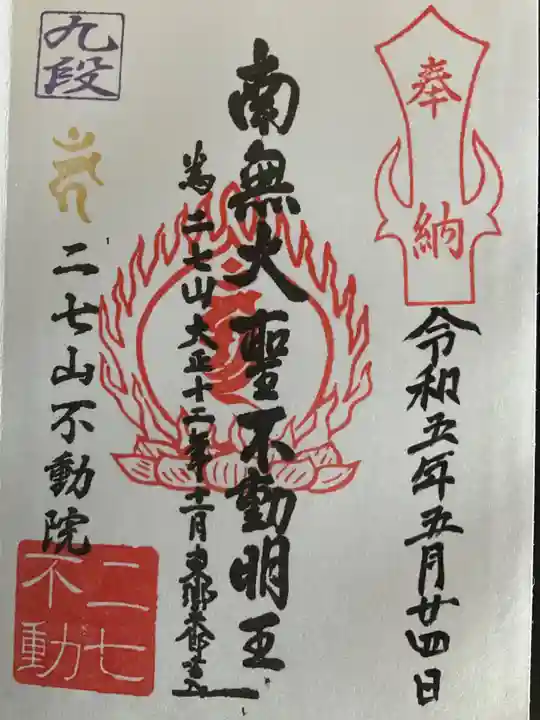 奉納
令和五年五月廿四日
南無大聖不動明王
為二七山大正十二年十二月東郷
九段
二七山不動院
二七
不動